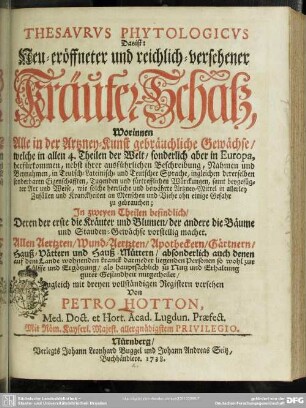 THESAURUS PHYTOLOGICUS
Das ist:
Neu-eröffneter und reichlich-versehener
Kräuter-Schatz,
Worinnen
Alle in der Artzney-Kunst gebräuchliche Gewächse/
welche in allen 4. Theilen der Welt/ sonderlich aber in Europa,
herfürkommen, nebst ihrer ausführlichen Beschreibung, Nahmen und
Zunahmen, in Teutsch-Lateinisch- und Teutscher Sprache, ingleichen derselben
sonderbaren Eigenschafften, Tugenden und fürtrefflichen Würckungen, samt
Art und Weise, wie solche herrliche und bewährte Artzney-Mittel in allerley
Zufällen und Kranckheiten an Menschen und Viehe ohn einige Gefahr
zu gebrauchen;
In zweyen Theilen befindlich/
Deren der erste die Kräuter und Blumen/ der andere die Bäume
und Stauden-Gewächse vorstellig machet.
Allen Aertzten/ Wund-Aertzten/ Apotheckern/ Gärtnern/
Hauß-Vättern und Hauß-Müttern/ absonderlich auch denen
auf dem Lande wohnenden kranck darnieder liegenden Personen so wohl zur
Hülffe und Ergötzung/ als hauptsächlich zu Nutz und Erhaltung
guter Gesundheit mitgetheilet/
Zugleich mit dreyen vollständigen Registern versehen
Von
PETRO HOTTON,
Med. Doct. et Hort. Acad. Lugdun. Præfect.
Mit Röm. Kayserl. Majest. allergnädigstem PRIVILEGIO.
Nürnberg/
Verlegts Johann Leonhard Buggel und Johann Andreas Seitz,
Buchhändlere. 1738.